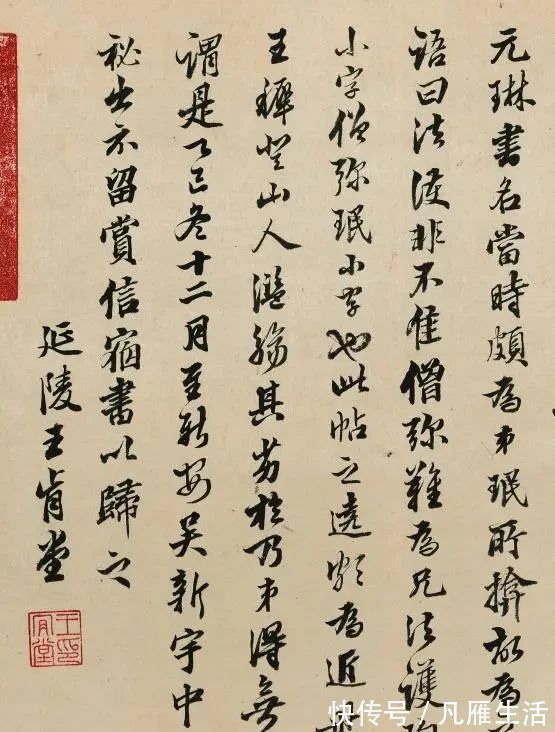 元琳書名當時頗為弟珉所揜故為
語曰法護非不佳僧彌難為兄法護珣
小字僧彌珉小字也此帖之遠頗為近
王穉登山人濫觴其劣於乃弟得無
謂是乙巳冬十二月至新安吴新宇中
祕出示留賞信宿書以歸之
延陵王肯堂
快传号 / 凡雁生活